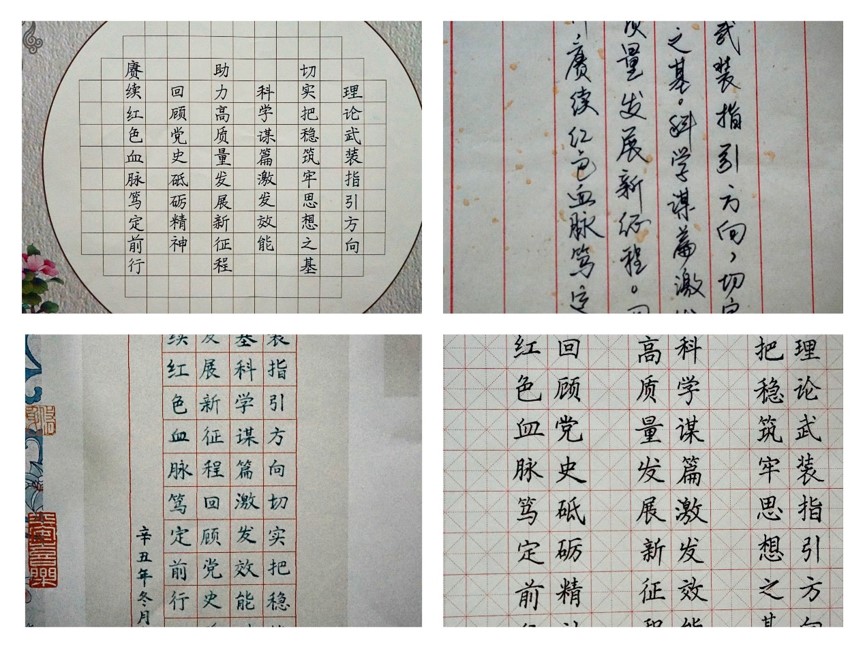 理论武装指引方向
切实把稳筑牢思想之基
科学谋篇激发效能
助力高质量发展新征程
回顾党史砥砺精神
赓续红色血脉笃定前行
武装指引方向，切实
之基。科学谋篇激发
质量发展新征程。回
赓续红色血脉笃定
装指引方向切实把稳
基科学谋篇激发效能
发展新征程回顾党史
续红色血脉笃定前行
辛丑年冬月
理论武装指引方向
把稳筑牢思想之基
科学谋篇激发效能
高质量发展新征程
回顾党史砥砺精
红色血脉笃定前